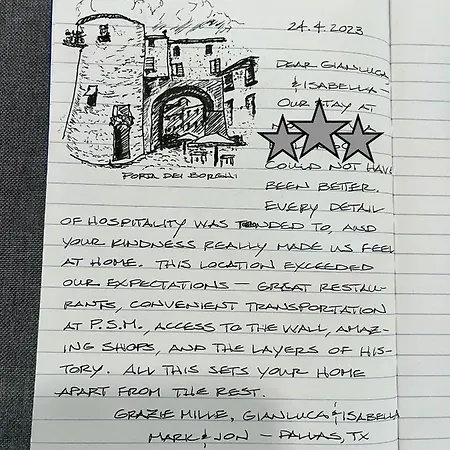 24.4.2023
DEAR GIANLUCA
& ISABELLA –
OUR STAY AT
COULD NOT HAVE
BEEN BETTER.
EVERY DETAIL
PORTA DEI BORGHI
OF HOSPITALITY WAS TENDED TO, AND
YOUR KINDNESS REALLY MADE US FEEL
AT HOME. THIS LOCATION EXCEEDED
OUR EXPECTATIONS – GREAT RESTAU-
RANTS, CONVENIENT TRANSPORTATION
AT P.S.M., ACCESS TO THE WALL, AMAZ-
ING SHOPS, AND THE LAYERS OF HIS-
TORY. ALL THIS SETS YOUR HOME
APART FROM THE REST.
GRAZIE MILLE, GIANLUCA & ISABELLA
MARK & JON – DALLAS, TX